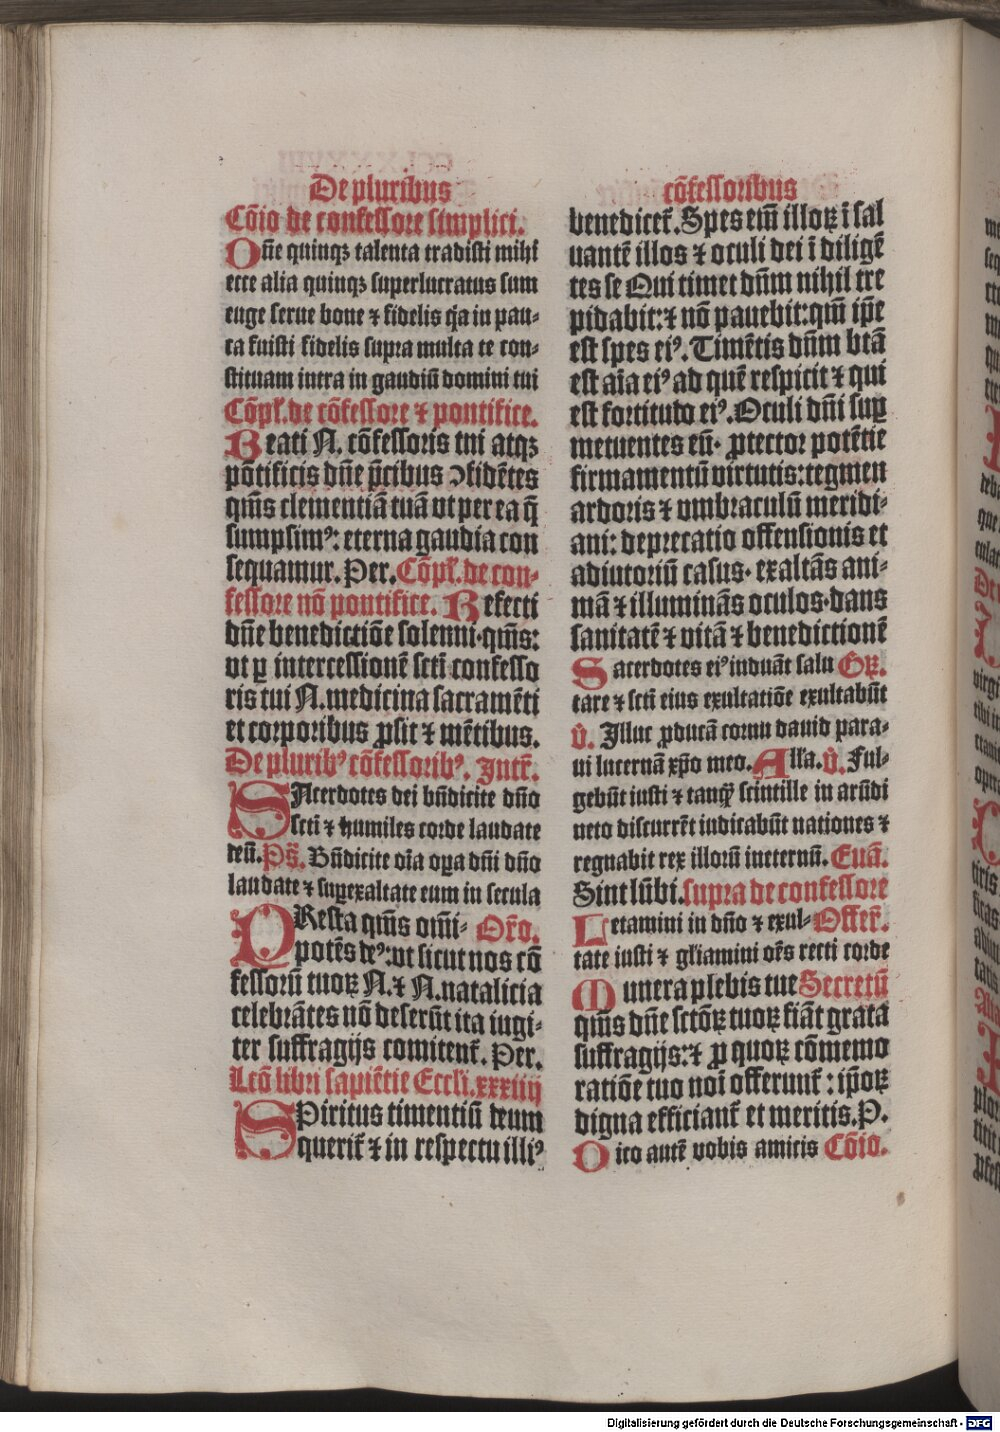 De pluribus
Cōio de confessore simplici.
Oñe quinqꝫ talenta tradisti mihi
ecce alia quinqꝫ superlucratus sum
euge serue bone ⁊ fidelis q̇a in pau-
ca fuisti fidelis supra multa te con-
stituam intra in gaudiū domini tui
Cōpl̕. de cōfessore ⁊ pontifice.
Beati N. cōfessoris tui atqꝫ
pōtificis dñe p̄cibus ↄfidētes
qm̄s clementiā tuā vt per ea q̄
sumpsimꝰ: eterna gaudia con
sequamur. Per. Cōpl̕. de con-
fessore nō pontifice. Refecti
dñe benedictiōe solenni·qm̄s:
vt ꝑ intercessionē scti confesso
ris tui N. medicina sacramēti
et corporibus ꝓsit ⁊ mētibus.
De pluribꝰ cōfessoribꝰ. Intr̄.
SAcerdotes dei bñdicite dño
scti ⁊ humiles corde laudate
deū. Ps̄. Bñdicite oīa oꝑa dñi dño
laudate ⁊ suꝑexaltate eum in secula
PResta qm̄s om̄i- Or̄o.
potēs deꝰ: vt sicut nos cō
fessorū tuoꝝ N. ⁊ N. natalicia
celebrātes nō deserūt ita iugi-
ter suffragijs comitent̄. Per.
Lcō libri sapiētie Eccli. xxxiiij
SPiritus timentiū deum
querit̄ ⁊ in respectu illiꝰ
cōfessoribus
benedicet̄. Spes em̄ illoꝝ ī sal
uantē illos ⁊ oculi dei ī diligē
tes se Qui timet dn̄m nihil tre
pidabit: ⁊ nō pauebit: qm̄ ip̄e
est spes eiꝰ. Timētis dn̄m btā
est aīa eiꝰ ad quē respicit ⁊ qui
est fortitudo eiꝰ. Oculi dñi suꝑ
metuentes eū· ꝓtector potētie
firmamentū virtutis: tegmen
ardoris ⁊ vmbraculū meridi-
ani: deprecatio offensionis et
adiutoriū casus· exaltās ani-
mā ⁊ illuminās oculos·dans
sanitatē ⁊ vitā ⁊ benedictionē
Sacerdotes eiꝰ induāt salu Gꝝ.
tare ⁊ scti eius exultatiōe exultabūt
v̄. Illuc ꝓducā cornu dauid para-
ui lucernā xp̄o meo. Allꝉa. v̄. Ful-
gebūt iusti ⁊ tanqȝ scintille in arūdi
neto discurrēt iudicabūt nationes ⁊
regnabit rex illorū ineternū. Euā.
Sint lūbi. supra de confessore
Letamini in dño ⁊ exul- Offer̄.
tate iusti ⁊ gl̕iamini oēs recti corde
Munera plebis tue Secretū
qm̄s dñe sctōꝝ tuoꝝ fiāt grata
suffragijs: ⁊ ꝓ quoꝝ cōmemo
ratiōe tuo noī offerunt̄: ip̄oꝝ
digna efficiant̄ et meritis. P.
Dico autē vobis amicis Cōio.
Digitalisierung gefördert durch die Deutsche Forschungsgemeinschaft - DFG